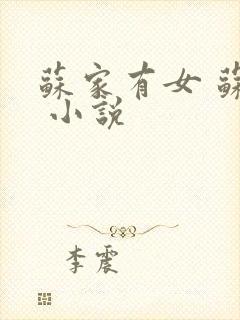 蘇家有女 蘇
小說
李震